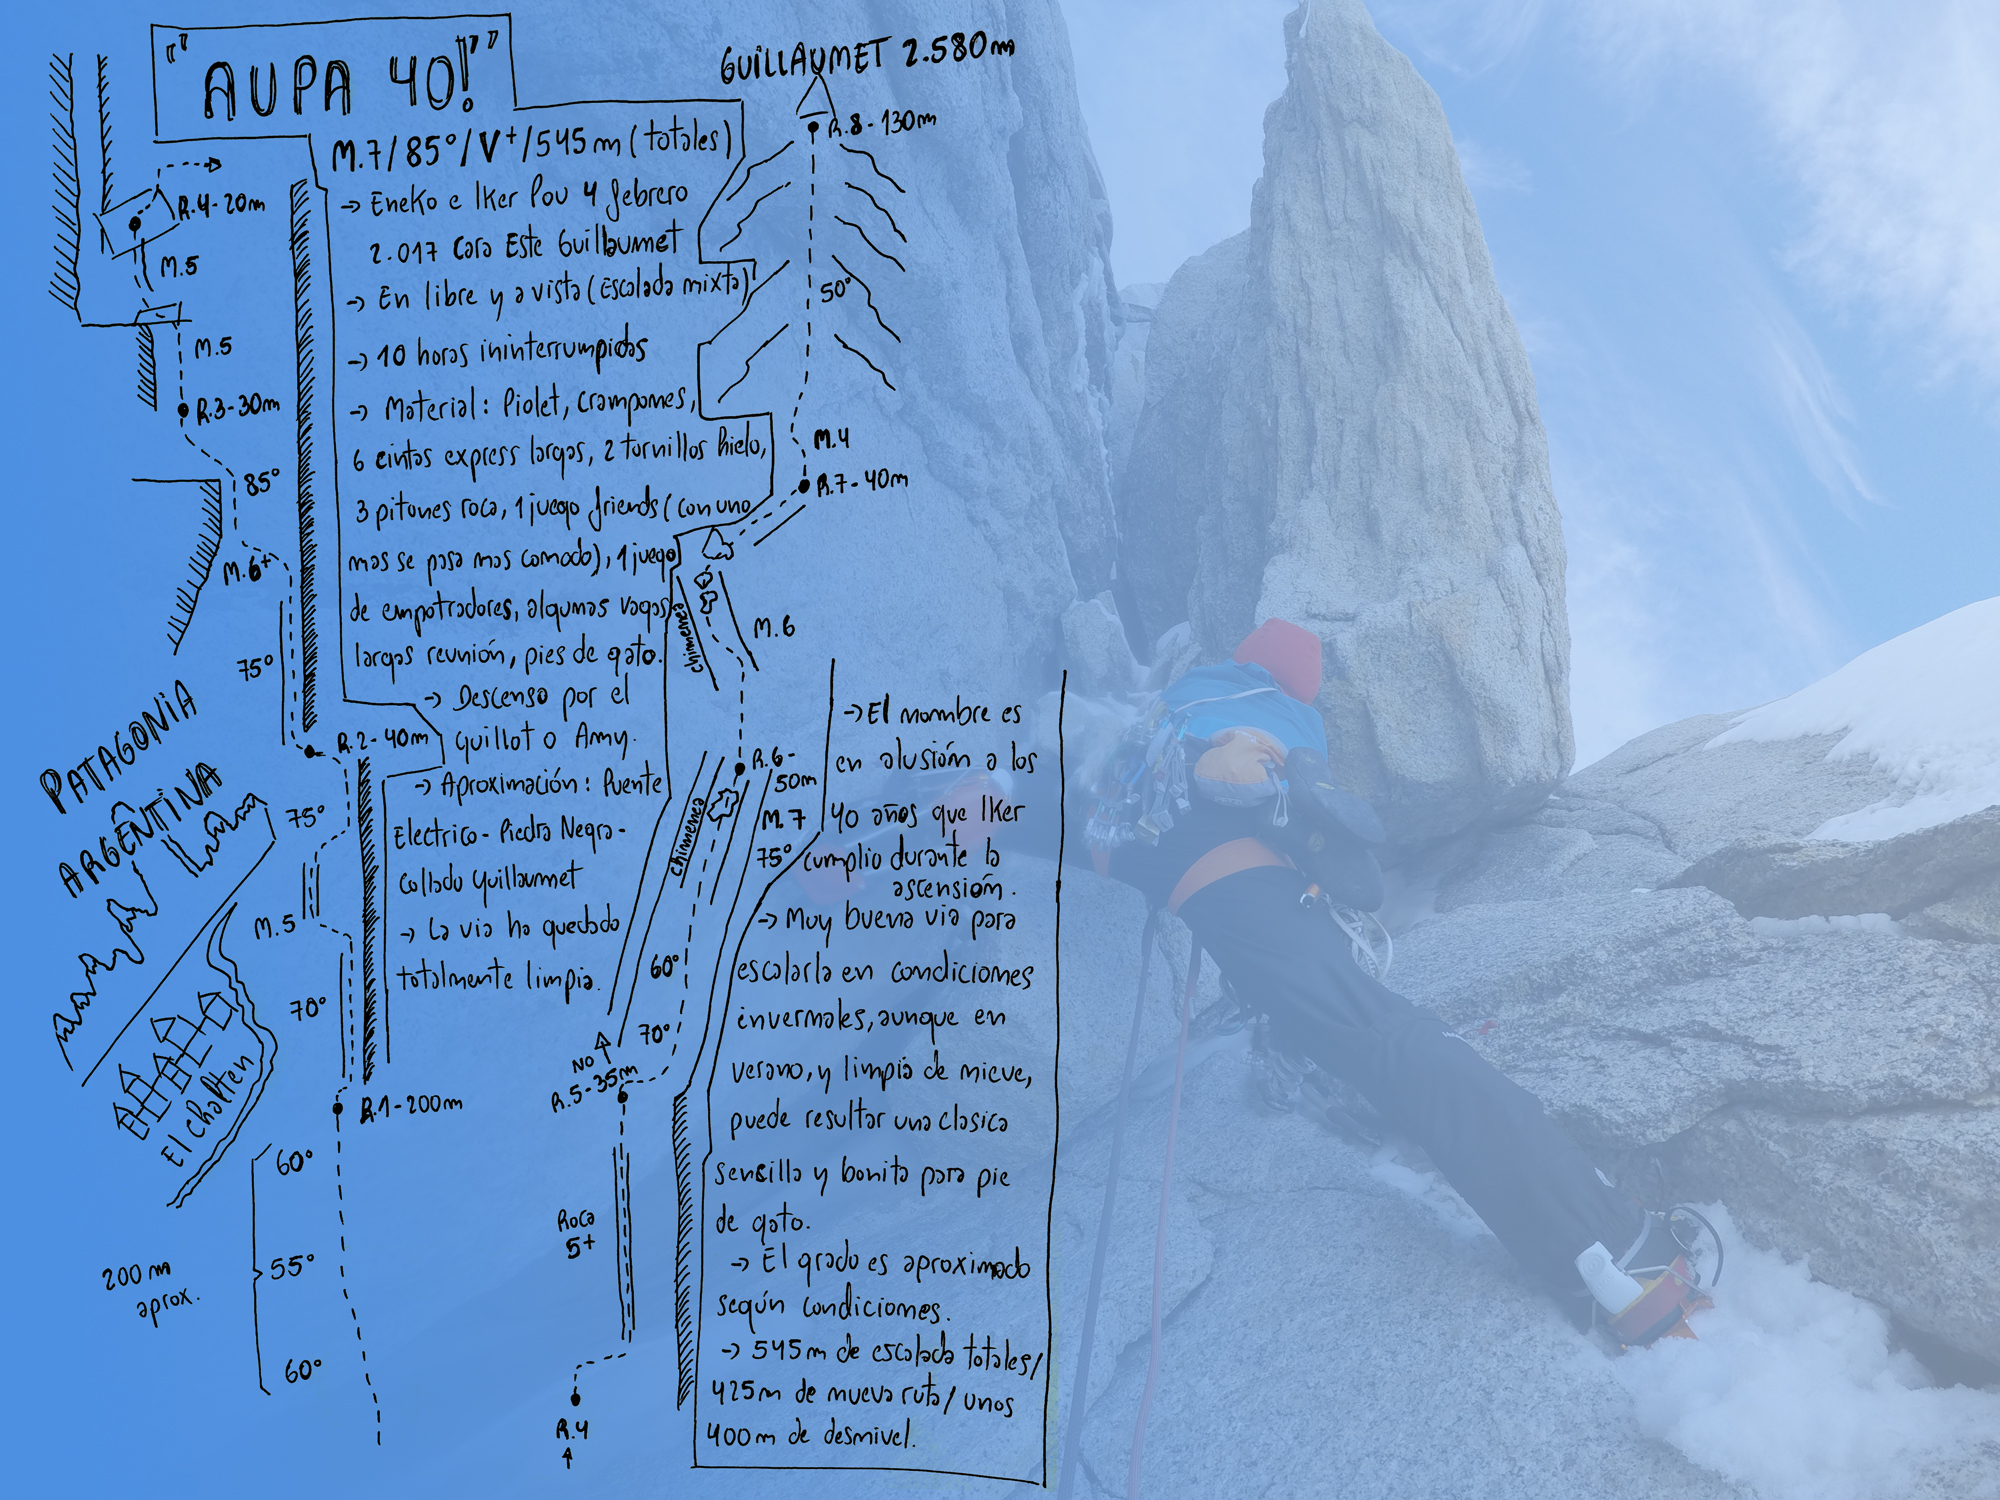 "AUPA 40!"
M.7/85°/V+/545m (totales)
→ Eneko e Iker Pou 4 febrero
2.017 Cara Este Guillaumet
→ En libre y a vista (Escalada mixta)
→ 10 horas ininterrumpidas
→ Material: Piolet, crampones,
6 cintas express largas, 2 tornillos hielo,
3 pitones roca, 1 juego friends (con uno
mas se pasa mas comodo), 1 juego
de empotradores, algunas vagas
largas reunión, pies de gato.
→ Descenso por el
Guillot o Amy.
→ Aproximación: Puente
Electrico - Piedra Negra -
Collado Guillaumet
→ La via ha quedado
totalmente limpia.
R.4-20m
M.5
M.5
R.3-30m
85°
M.6+
75°
R.2-40m
75°
M.5
70°
R.1-200m
60°
55°
60°
200 m
aprox.
PATAGONIA
ARGENTINA
El Chalten
GUILLAUMET 2.580m
R.8-130m
50°
M.4
R.7-40m
chimenea
M.6
R.6-
50m
chimenea
M.7
75°
60°
70°
NO
R.5-35m
Roca
5+
R.4
→ El nombre es
en alusión a los
40 años que Iker
cumplio durante la
ascensión.
→ Muy buena via para
escalarla en condiciones
invernales, aunque en
verano, y limpia de nieve,
puede resultar una clasica
sencilla y bonita para pie
de gato.
→ El grado es aproximado
según condiciones.
→ 545m de escalada totales/
425m de nueva ruta/ unos
400m de desnivel.